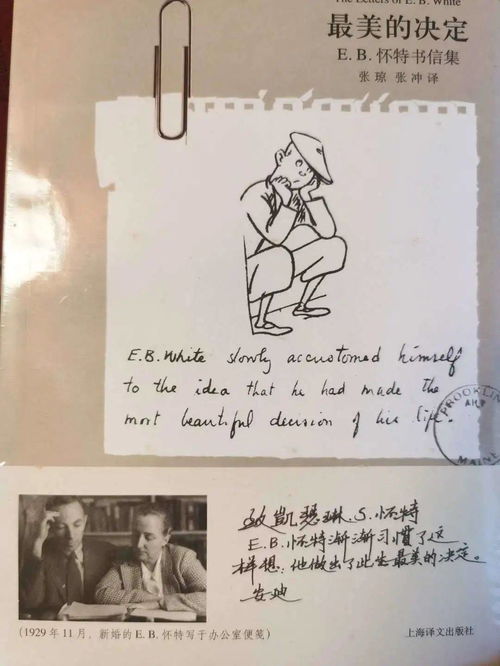 The Letters of E. B. White
最美的决定
E. B. 怀特书信集
张 琼 张 冲 译
E.B. White slowly accustomed himself
to the idea that he had made the
most beautiful decision of his life.
BROOKLIN
MAINE
致凱瑟琳.S.怀特
E.B.怀特渐渐习惯了这
样想：他做出了此生最美的决定。
安迪
(1929 年 11 月，新婚的 E. B. 怀特写于办公室便笺)
上海译文出版社